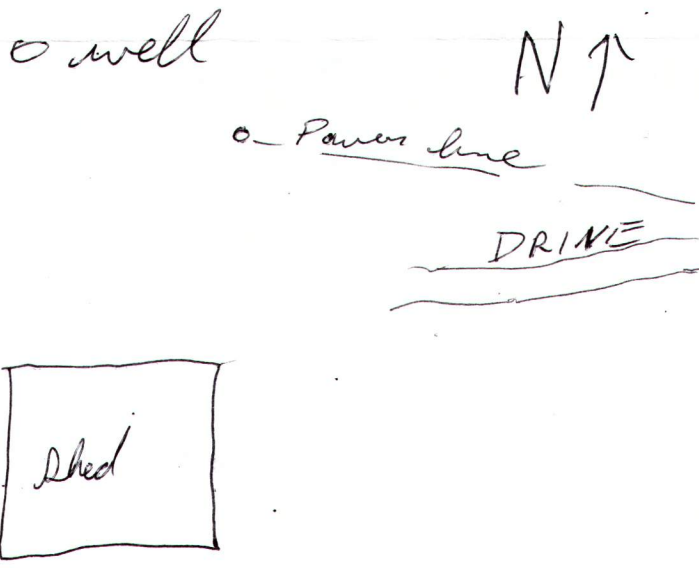 well
N
Power line
DRIVE
Shed